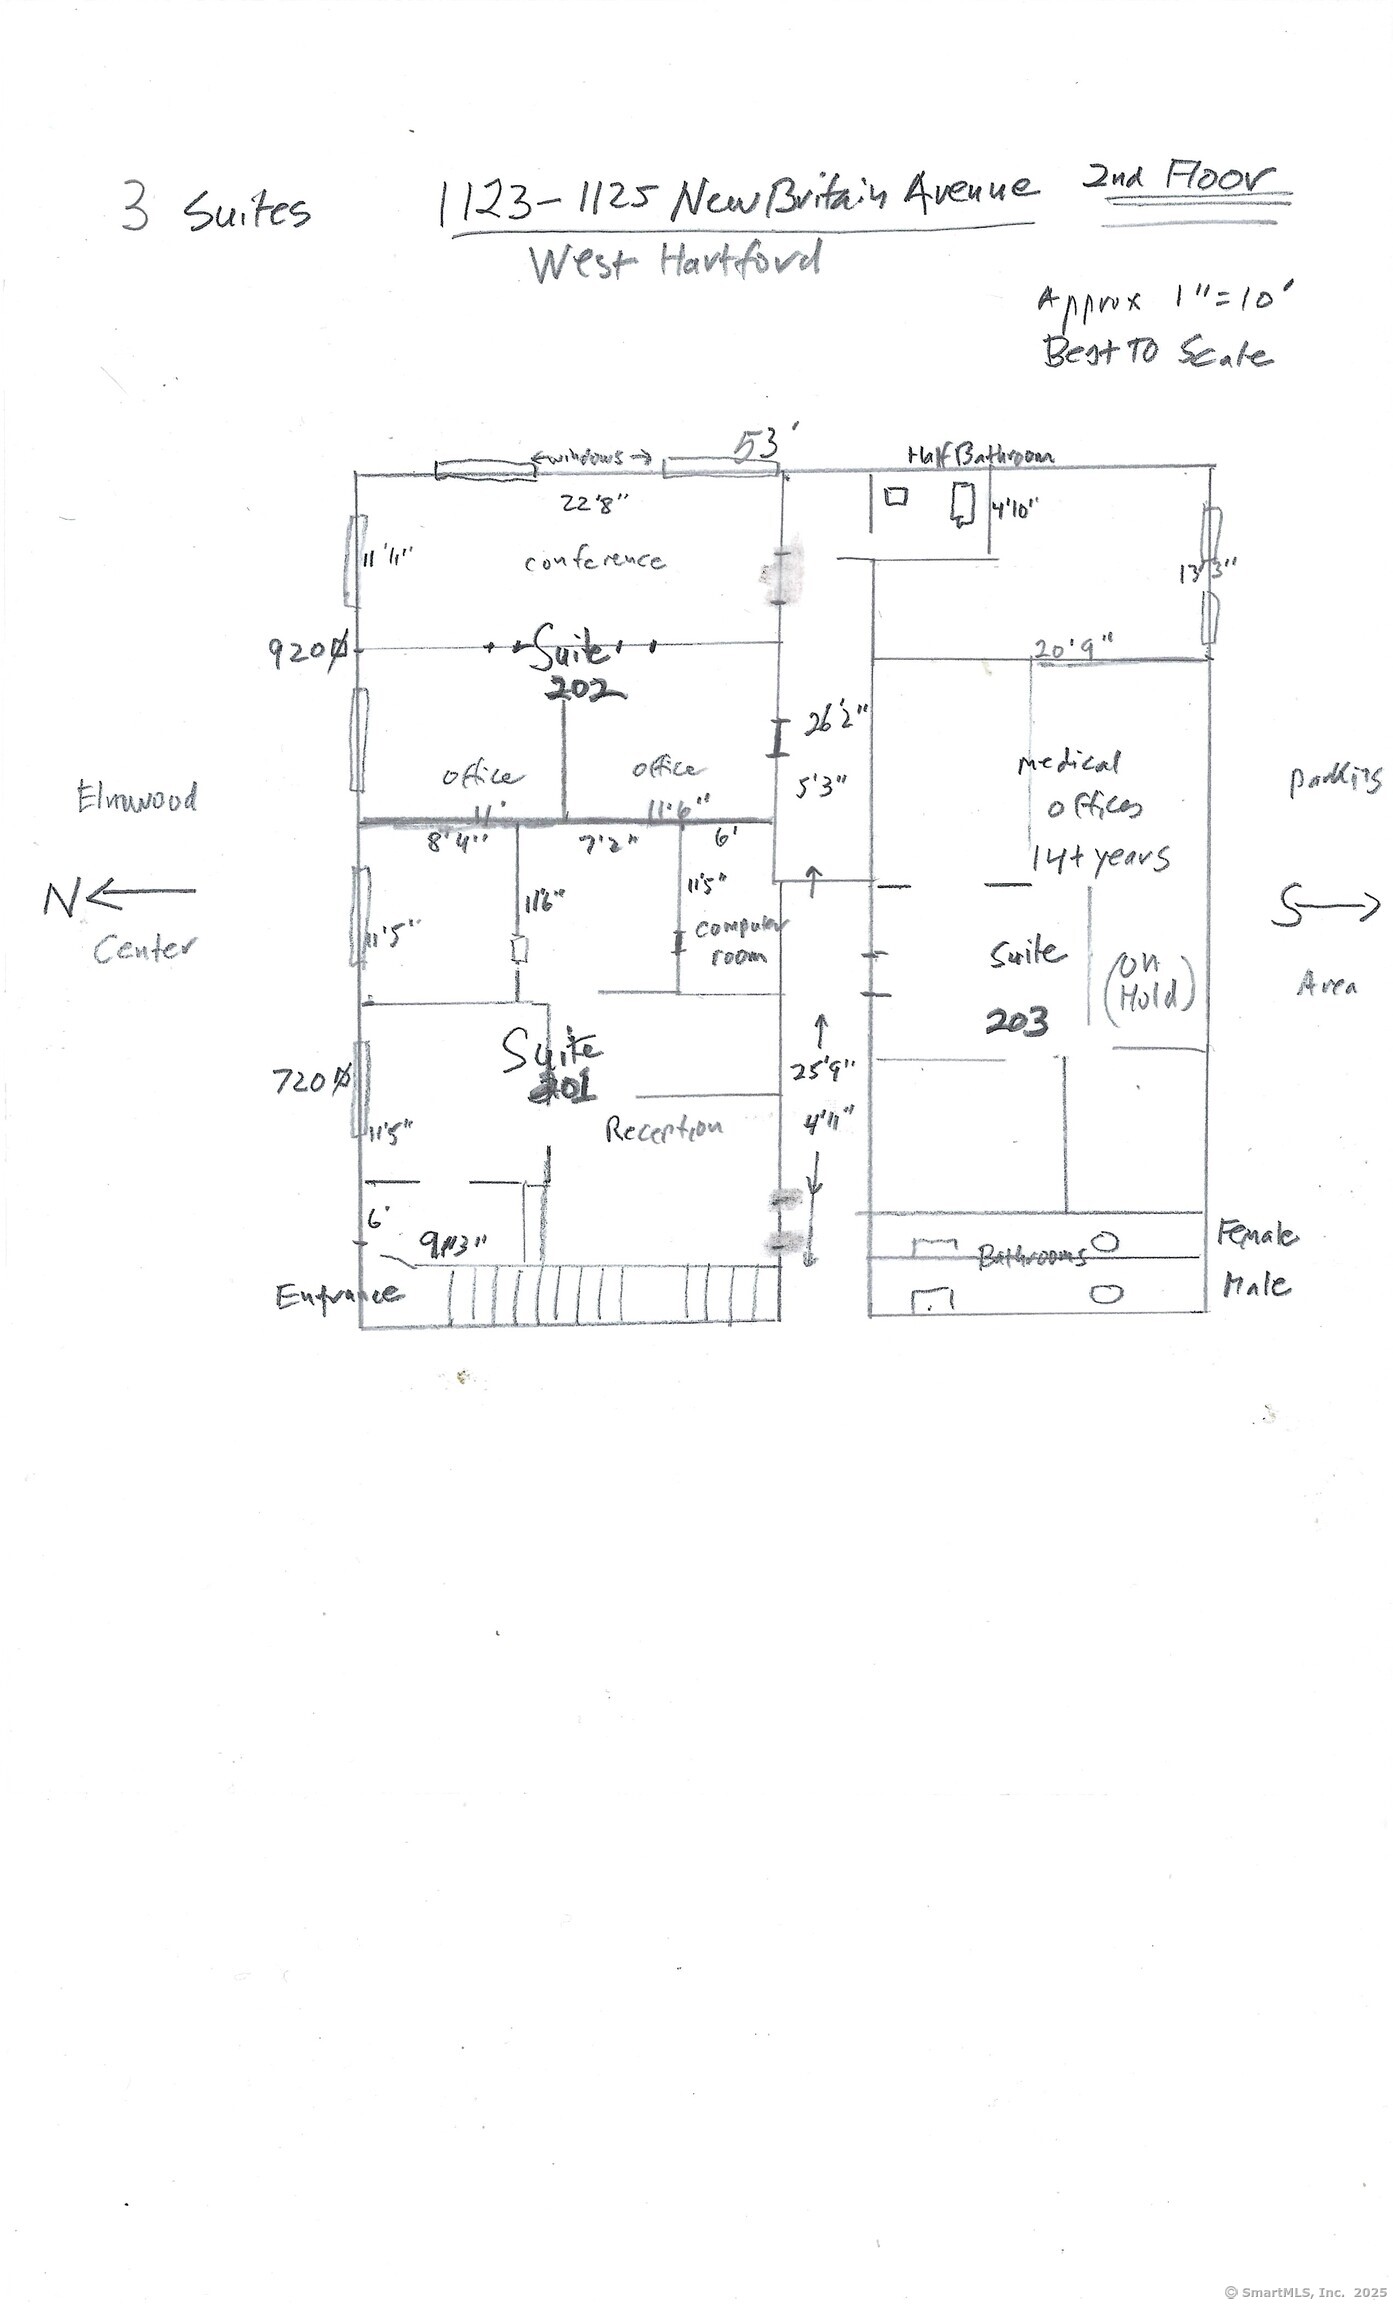 3 Suites
1123-1125 New Britain Avenue 2nd Floor
West Hartford
Approx 1"=10'
Best To Scale
53'
←windows→
Half Bathroom
22'8"
4'10"
conference
13'3"
920
Suite
202
20'9"
26'2"
5'3"
office
office
11'
11'6"
medical
offices
14+ years
Elmwood
N
Center
Parking
S
Area
8'4"
7'2"
6'
11'6"
11'5"
11'5"
computer
room
Suite
203
(on
Hold)
720
Suite
201
25'9"
4'11"
11'5"
Reception
6'
Entrance
Bathrooms
Female
Male
© SmartMLS, Inc. 2025